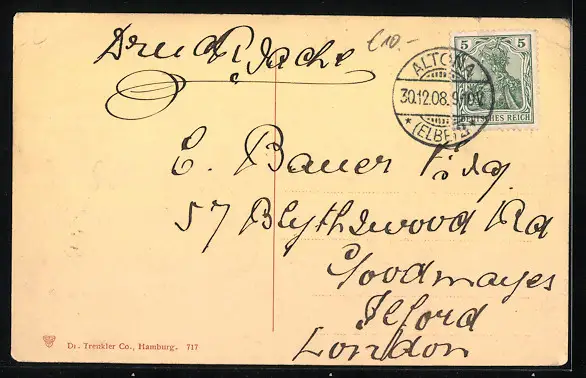 Drucksache
£10.-
5 5
DEUTSCHES REICH
ALTONA
30.12.08. 9-10V.
* (ELBE) 2 *
E. Bauer Esq.
57 Blythswood Rd
Goodmayes
Ilford
London
Dr. Trenkler Co., Hamburg. 717